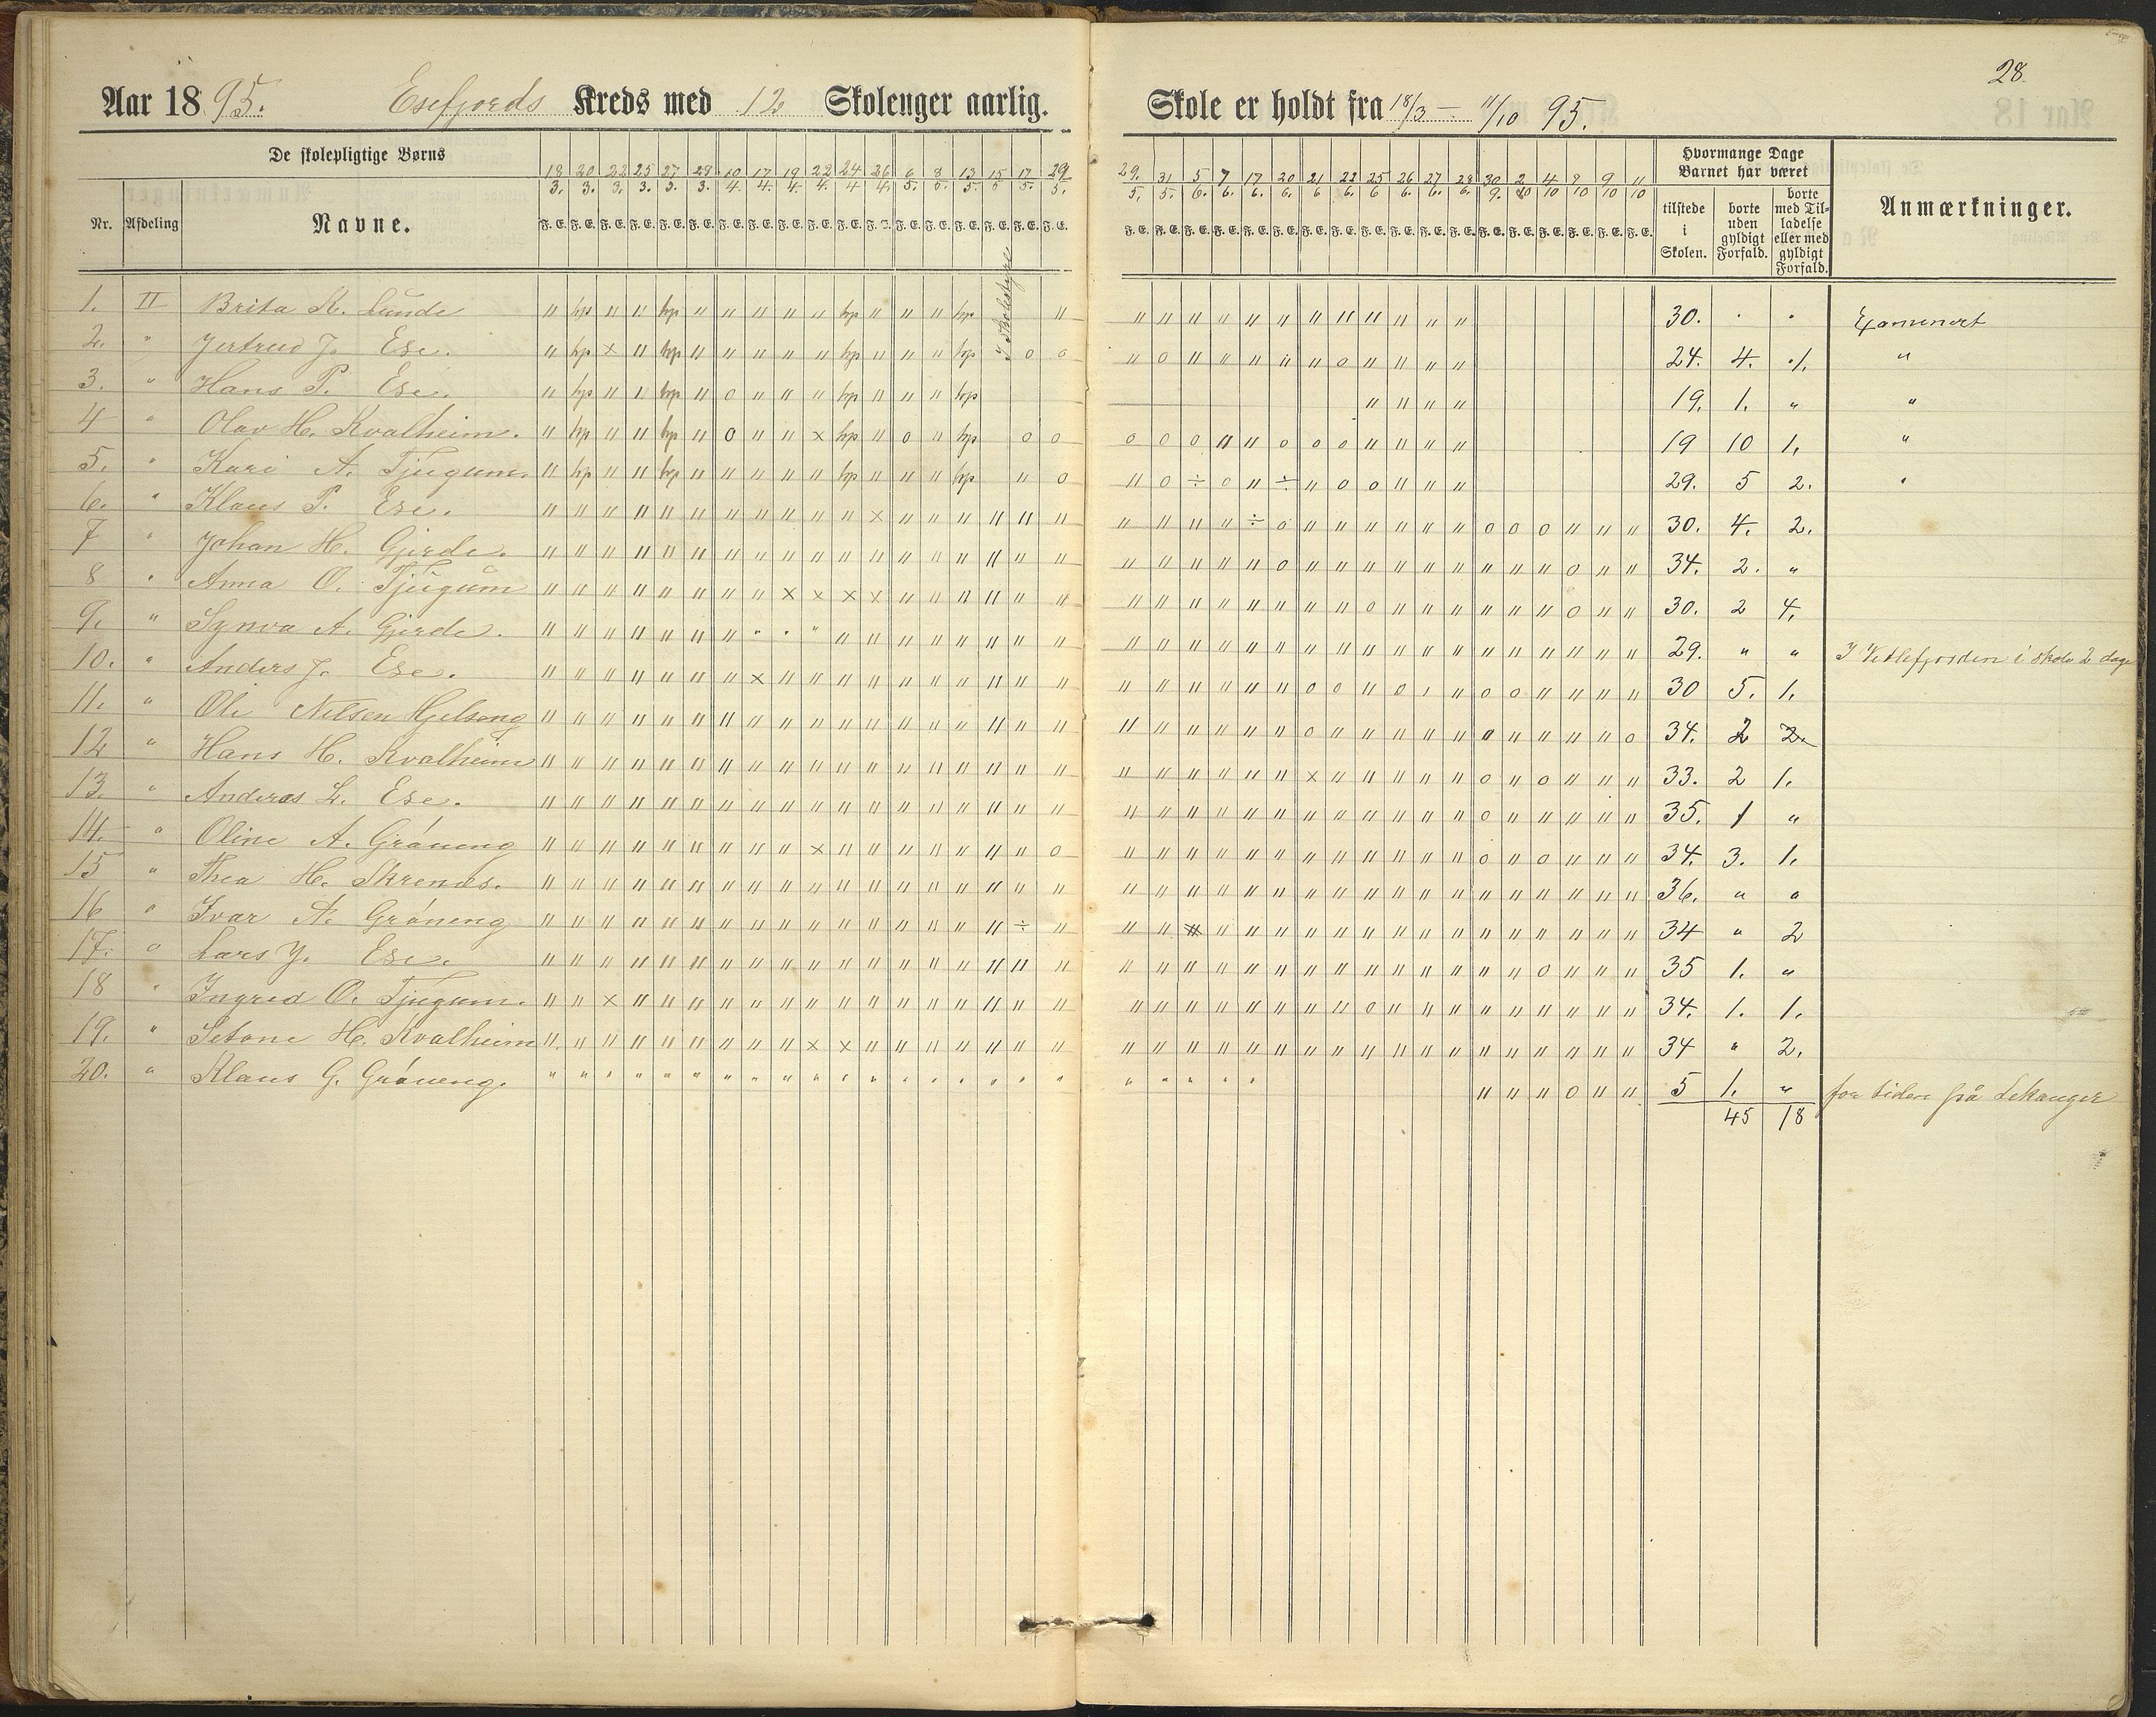 28.
Aar 1895. Esefjords Kreds med 12 Skoleuger aarlig. Skole er holdt fra 18/3 — 11/10 95.
De skolepligtige Børns
Hvormange Dage Barnet har været
18/3. 20/3. 22/3. 25/3. 27/3. 29/3. 10/4. 17/4. 19/4. 22/4. 24/4 26/4. 6/5. 8/5. 13/5. 15/5 17/5. 29/5. 29./5. 31/5. 5/6. 7/6. 17/6. 20/6. 21/6 22/6. 25/6 26/6. 27/6. 28/6. 30/9. 2/10 4/10 7/10 9/10 11/10
Nr. Afdeling Navne. F. E. tilstede i Skolen. borte uden gyldigt Forfald. borte med Tilladelse eller med gyldigt Forfald. Anmærkninger.
I Skolestyre
1. II Brita K. Lunde 30. . . Examinert
2. " Jertrud J. Ese. 24. 4. 1. "
3. " Hans P. Ese. 19. 1. " "
4 " Olav H. Kvalheim. 19 10 1. "
5. " Kari A. Tjugum. 29. 5 2. "
6. " Klaus P. Ese. 30. 4. 2.
7 " Johan H. Gjerde. 34. 2. "
8 " Anna O. Tjugum 30. 2 4.
9. " Synva A. Gjerde. 29. " " I Vetlefjorden i skole 2 dage
10. " Anders J. Ese. 30 5. 1.
11. " Ole Nilsen Hjelseng 34. 2 2.
12 " Hans H. Kvalheim 33. 2 1.
13. " Anderas L. Ese. 35. 1 "
14. " Oline A. Grøneng 34. 3. 1.
15 " Thea H. Skrenæs. 36. " "
16 " Ivar A. Grøneng 34 " 2
17. " Lars J. Ese. 35 1. "
18 " Ingrid O. Tjugum. 34. 1. 1.
19. " Setone H. Kvalheim 34 " 2.
20. " Klaus G. Grøneng. 5 1. " for tiden på Lekanger
45 18